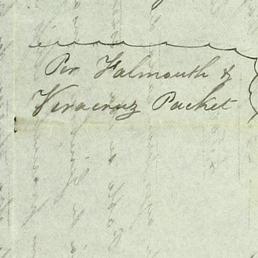 Per Falmouth &
Veracruz Packet